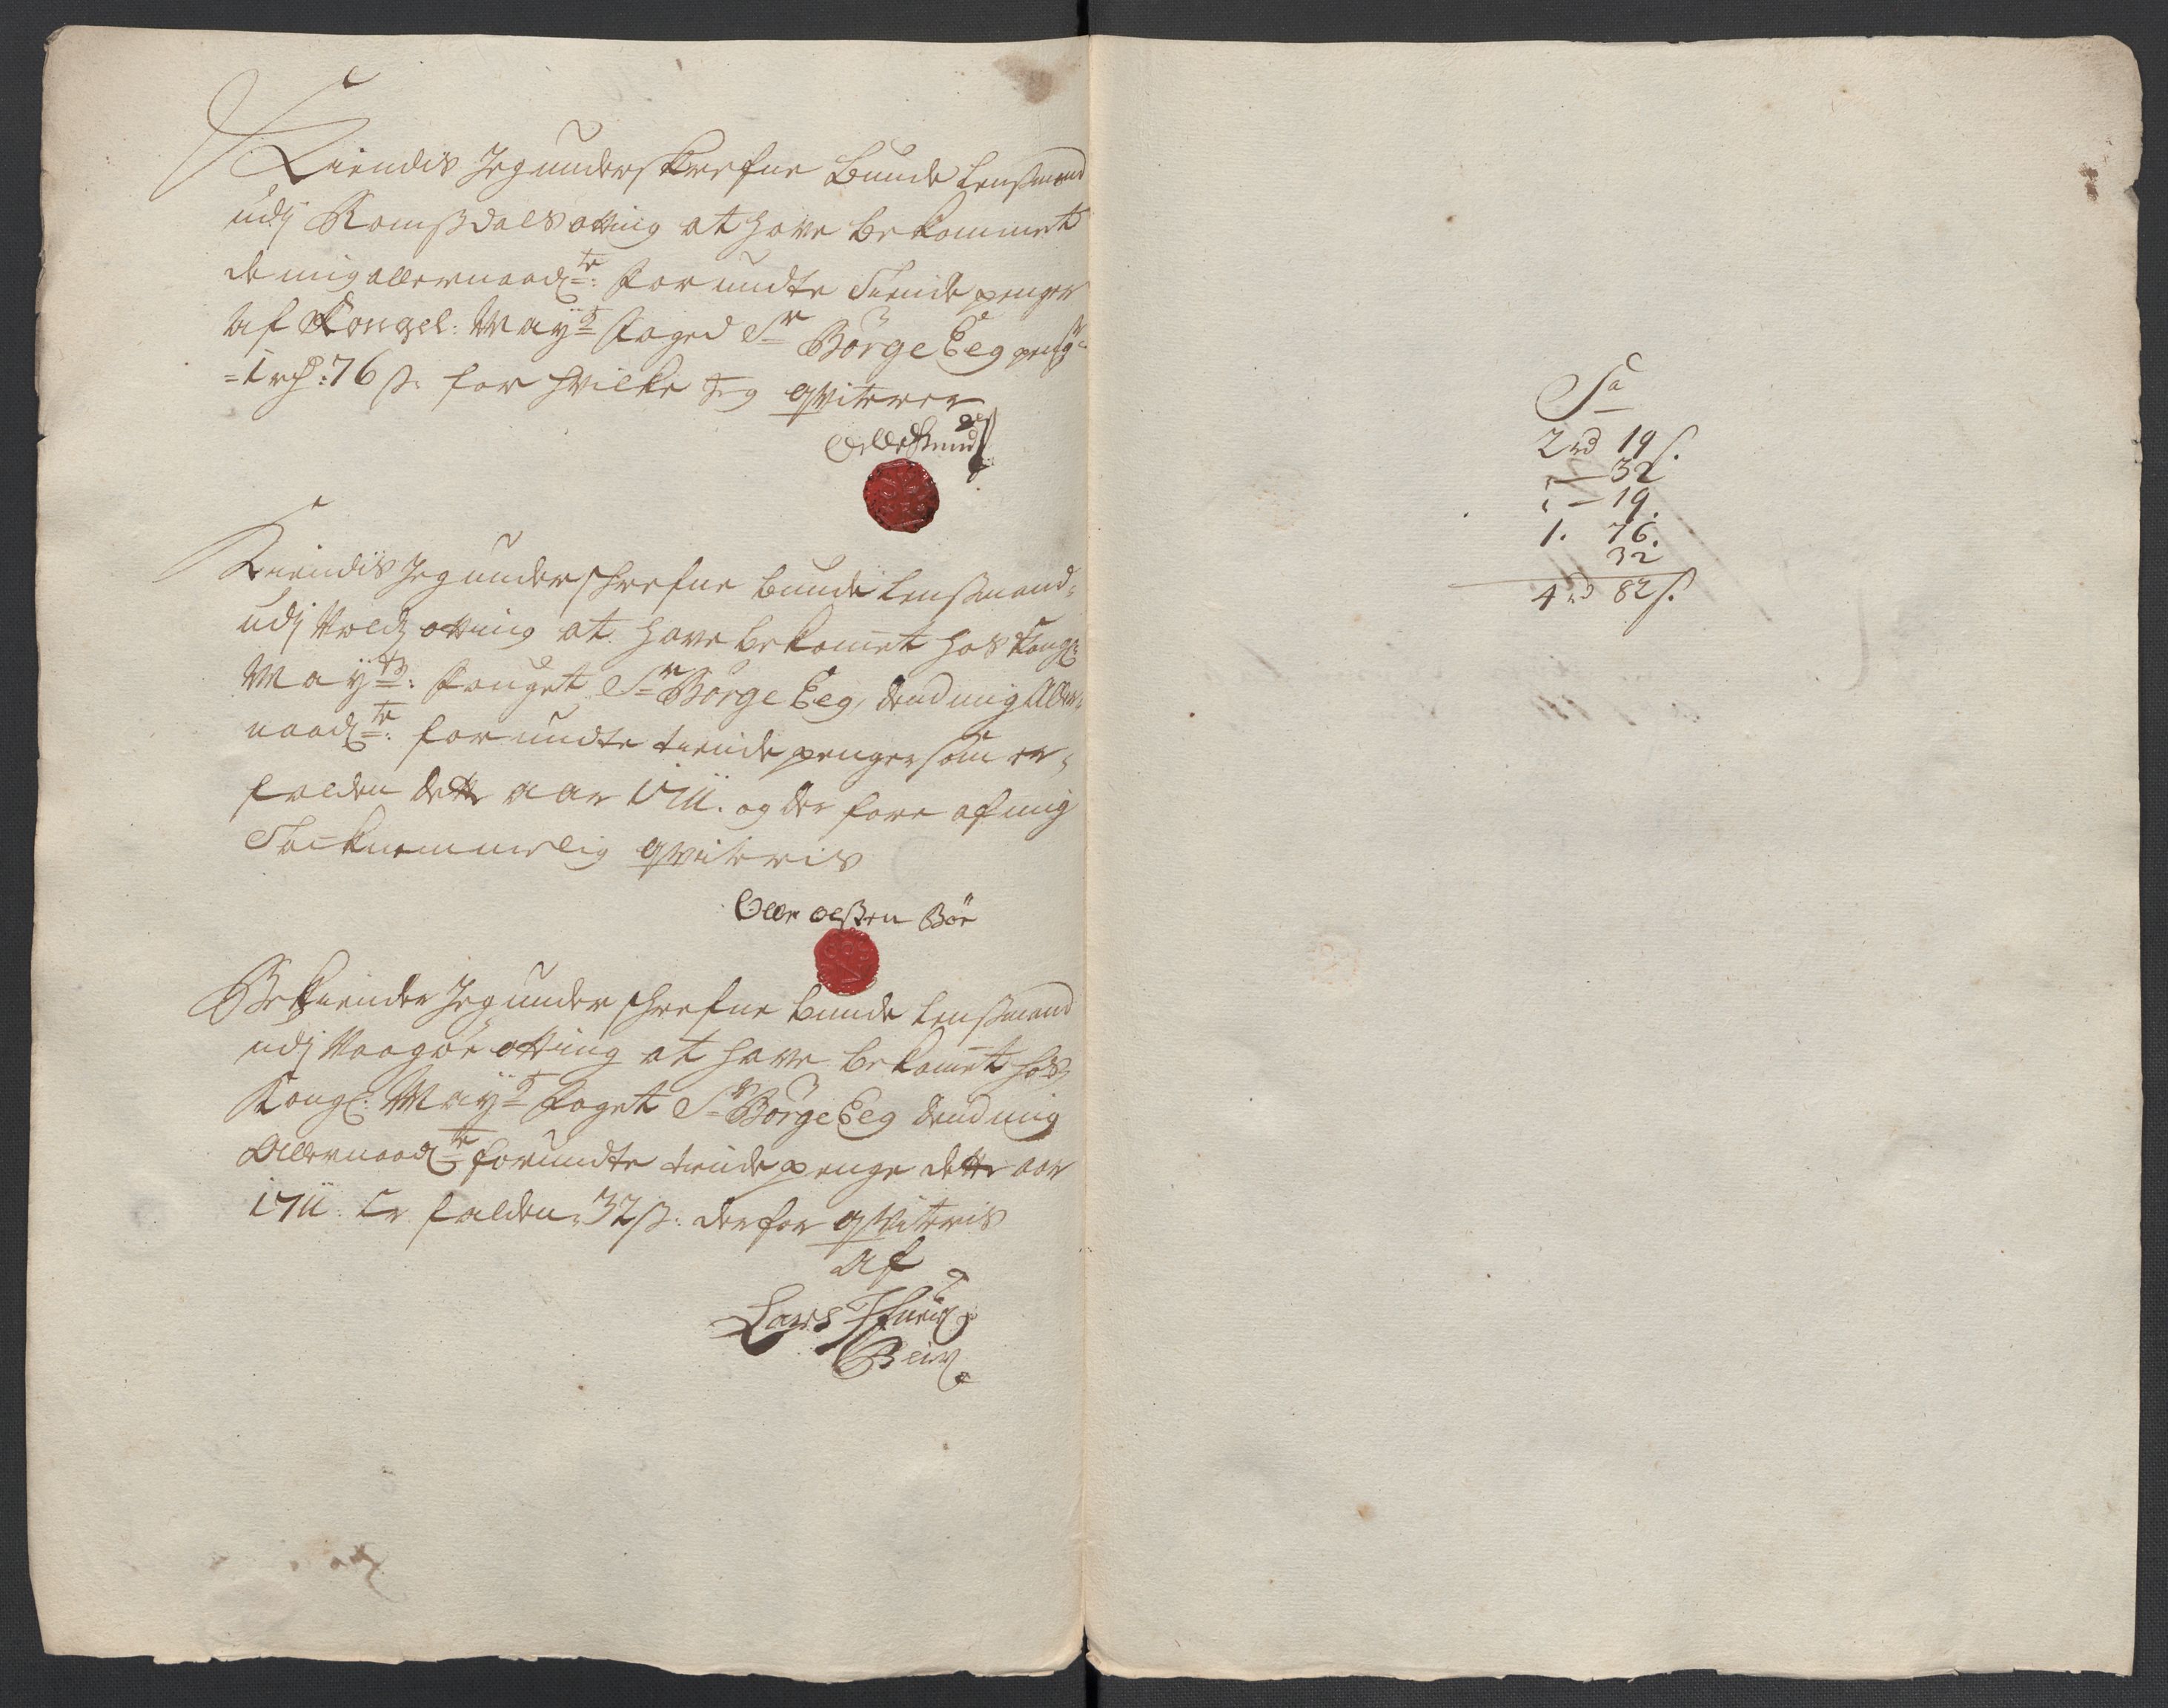 Kiendis Jeg underskrefne bunde lensmand
udj Romsdals otting at have bekommet
de mig allernaad: te forundte tiende penger
af Kongel: May: ts foged Sr Börge Eeg
= 1 rd: 76 ß: for hvilke jeg qviterer
Kiendis Jeg underschrefne bunde lensmand
udj Voldz otting at have bekom̄et hos Kongl:
May: ts: fouget Sr Börge Eeg, dend mig Aller-
naad: te: forundte tiende penger som er
falden dette aar 1711. og der fore af mig
Tacknemmelig qviteris
Olle Olßen Böe
Bekiender Jeg underschrefne bunde lensmand
udj Vaagöe otting at have bekom̄et hos
Kongl: May: ts foget Sr Börge Eeg dend mig
Allernaad: te forundte tiende penge dette aar
1711. Er falden 32 ß: derfor qviteris
af
Lars
Sa
2 rd 19 ß.
— 32
– 19.
1. 76.
32
4 rd 82 ß.